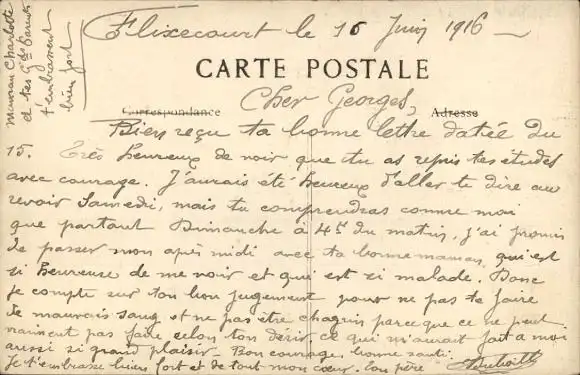 Flixecourt le 16 Juin 1916
Maman Charlotte
et tes Gds Parents
t'embrassent
bien fort
CARTE POSTALE
Correspondance
Adresse
Cher Georges,
Bien reçu ta bonne lettre datée du
15. Très heureux de voir que tu as repris tes études
avec courage. J'aurais été heureux d'aller te dire au
revoir Samedi, mais tu comprendras comme moi
que partant Dimanche à 4h du matin, j'ai promis
de passer mon après midi avec ta bonne maman, qui est
si heureuse de me voir et qui est si malade. Donc
je compte sur ton bon jugement pour ne pas te faire
de mauvais sang et ne pas être chagrin parce que ce ne peut
vraiment pas faire selon ton désir, ce qui m'aurait fait a moi
aussi si grand plaisir. Bon courage, bonne santé.
Je t'embrasse bien fort et de tout mon cœur. Ton père